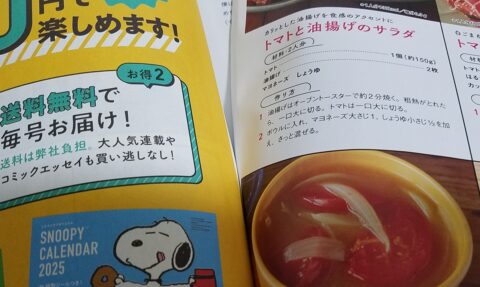 円で
楽しめます!
お得2
送料無料で
毎号お届け!
送料は弊社負担。大人気連載や
コミックエッセイも買い逃しなし!
SNOOPY
CALENDAR
2025
カリッとした油揚げを食感のアクセントに
トマトと油揚げのサラダ
材料・2人分
トマト 1個(約150g)
油揚げ 2枚
マヨネーズ しょうゆ
作り方
1 油揚げはオーブントースターで約2分焼く。粗熱がとれた
ら、一口大に切る。トマトは一口大に切る。
2 ボウルに入れ、マヨネーズ大さじ1、しょうゆ小さじ½を加
え、さっと混ぜる。